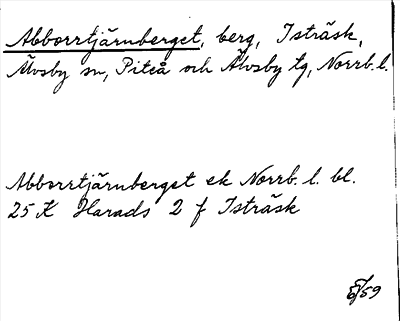 Abborrtjärnberget, berg, Isträsk,
Älvsby sn, Piteå och Älvsby tg, Norrb. l.
Abborrtjärnberget ek Norrb. l. bl.
25 K Harads 2 f Isträsk
/59